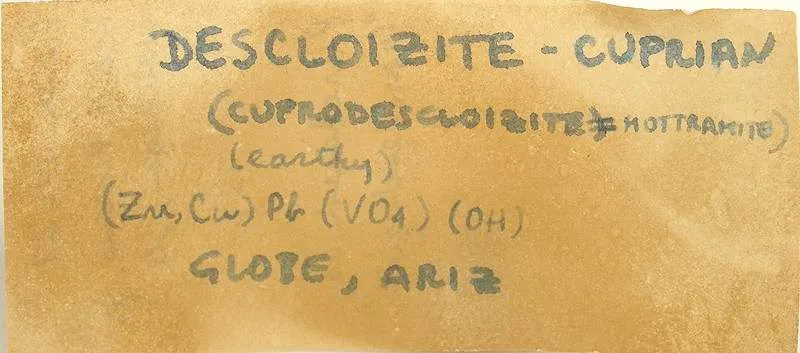 DESCLOIZITE - CUPRIAN
(CUPRODESCLOIZITE) = MOTTRAMITE)
(earthy)
(Zn, Cu) Pb (VO4) (OH)
GLOBE, ARIZ